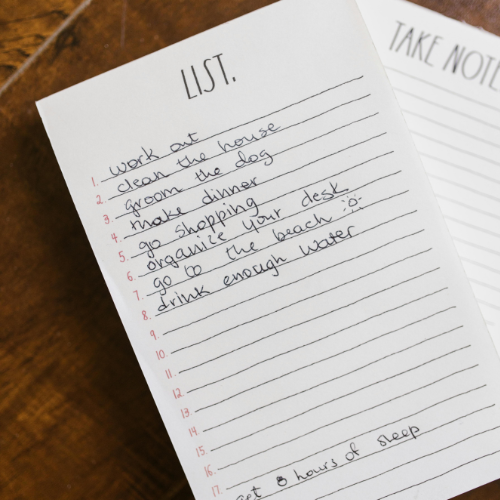 LIST.
TAKE NOTE
1. work out
2. clean the house
3. groom the dog
4. make dinner
5. go shopping
6. organize your desk
7. go to the beach
8. drink enough water
9.
10.
11.
12.
13.
14.
15.
16.
17. get 8 hours of sleep